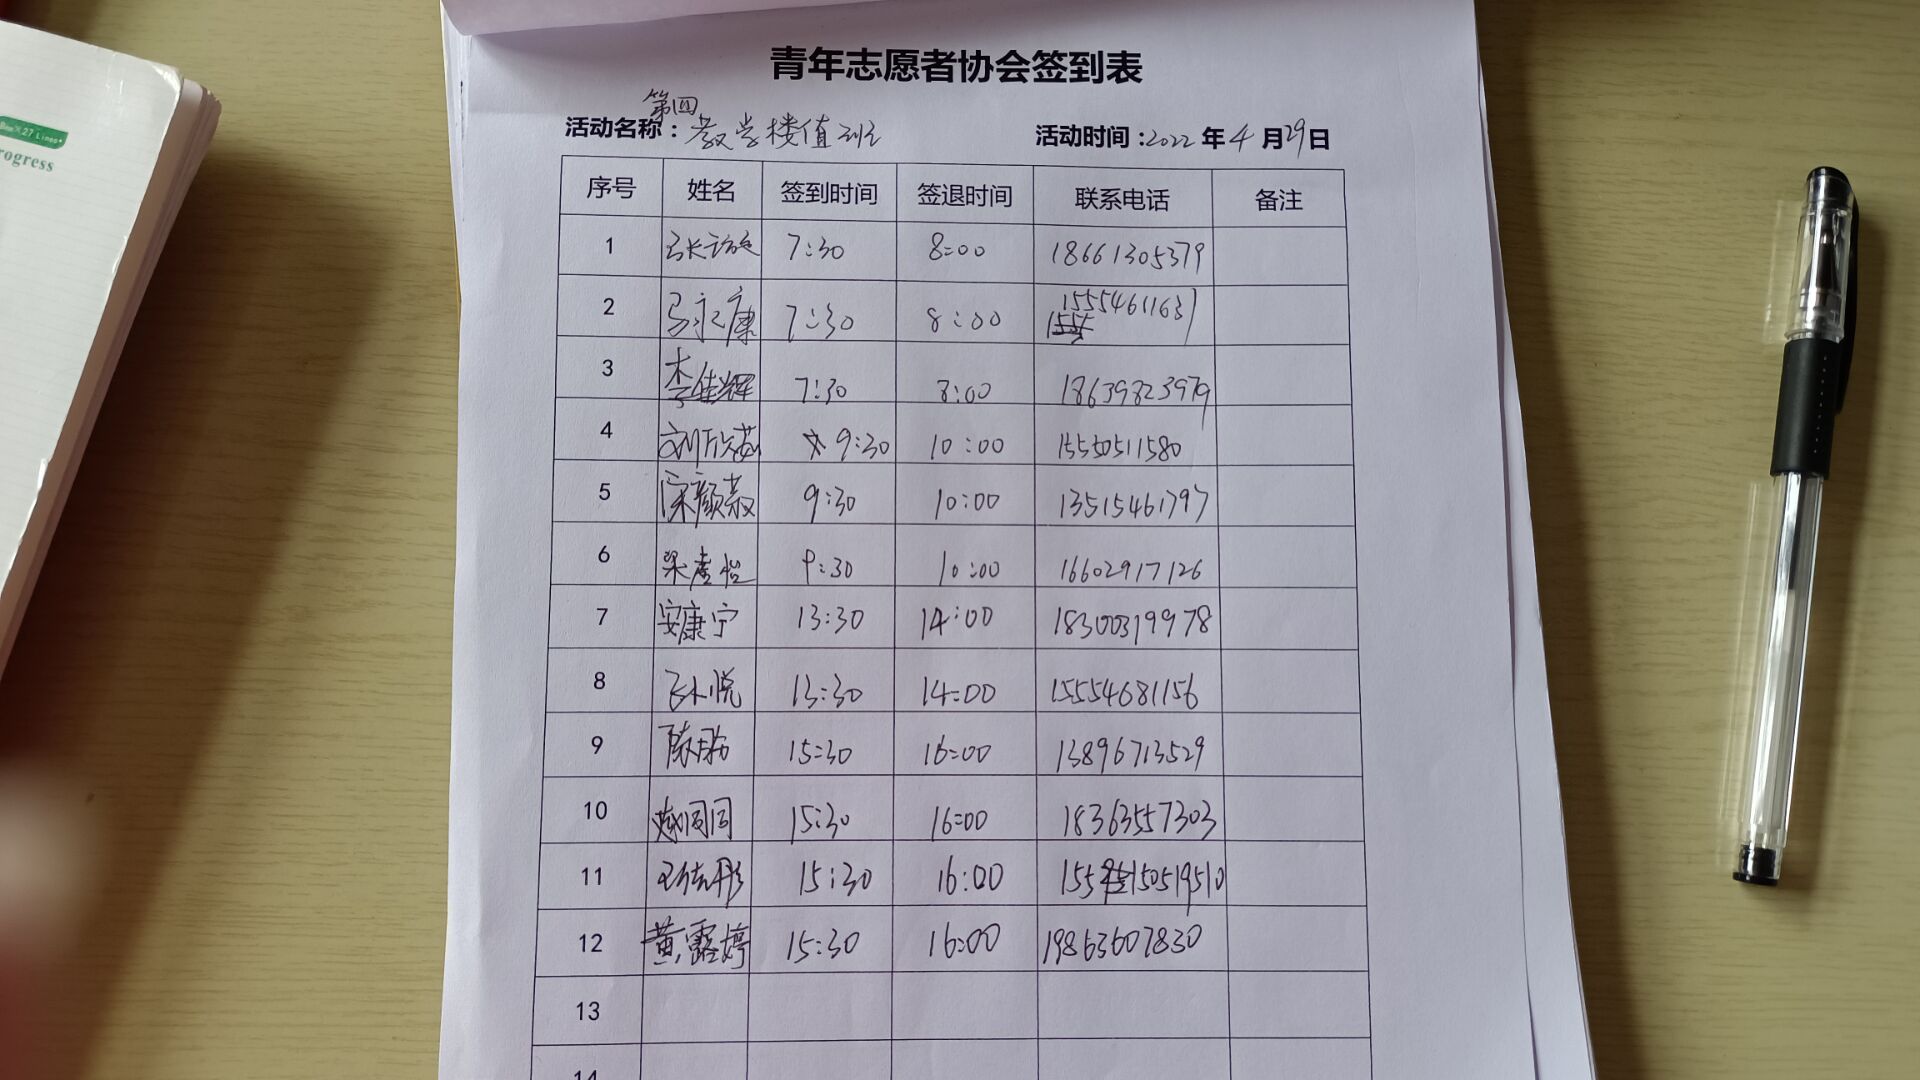 27 Lines
rogress
青年志愿者协会签到表
第四
活动名称：教学楼值班 活动时间：2022年4月29日
序号 姓名 签到时间 签退时间 联系电话 备注
1 7:30 8:00 18661305379
2 马永康 7:30 8:00 15554611637
3 李佳辉 7:30 8:00 18639823979
4 刘欣茹 9:30 10:00 15550511580
5 宋颜敏 9:30 10:00 13515461797
6 梁彦怡 9:30 10:00 16602917126
7 安康宁 13:30 14:00 18300319978
8 13:30 14:00 15554681156
9 15:30 16:00 13896713529
10 同同 15:30 16:00 18363557303
11 王佳彤 15:30 16:00 150519510
12 黄露婷 15:30 16:00 19863607830
13
14